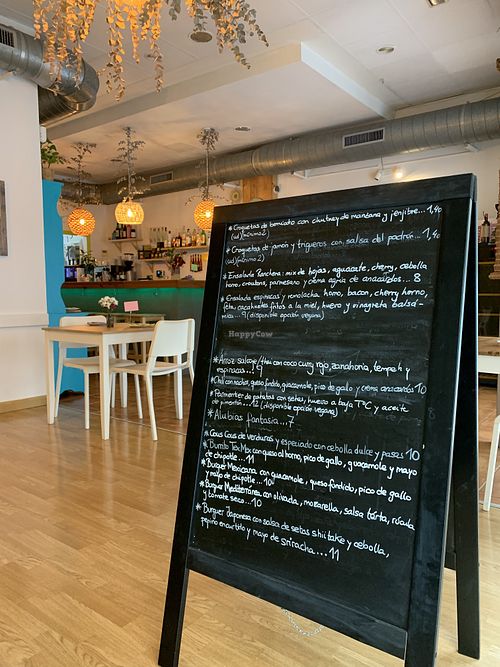 * Croquetas de boniato con chutney de manzana y jenjibre... 1,40
(ud)(mínimo 2)
* Croquetas de jamón y trigueros con salsa del padrón... 1,40
(ud)(mínimo 2)
* Ensalada Ranchera: mix de hojas, aguacate, cherry, cebolla
horno, croutons, parmesano y crema agria de anacardos... 8
* Ensalada espinacas y remolacha horno, bacon, cherry horno,
feta, cacahuetes fritos a la miel, huevo y vinagreta balsá-
mica... 9 (disponible opción vegana)
HappyCow
* Arroz salvaje / thai con coco curry rojo, zanahoria, tempeh y
espinacas... 9
* Chili con nachos, queso fundido, guacamole, pico de gallo y crema anacardos 10
* Parmentier de patatas con setas, huevo a baja Tª y aceite
de pimentón... 12 (disponible opción vegana)
* Alubias fantasía... 7
* Cous Cous de verduras y especiado con cebolla dulce y pasas 10
* Burrito TexMex con queso al horno, pico de gallo, guacamole y mayo
de chipotle... 11
* Burger Mexicana con guacamole, queso fundido, pico de gallo
y mayo de chipotle... 10
* Burger Mediterránea con olivada, mozarella, salsa tártara, rúcula
y tomate seco... 10
* Burguer Japonesa con salsa de setas shiitake y cebolla,
pepino encurtido y mayo de sriracha... 11